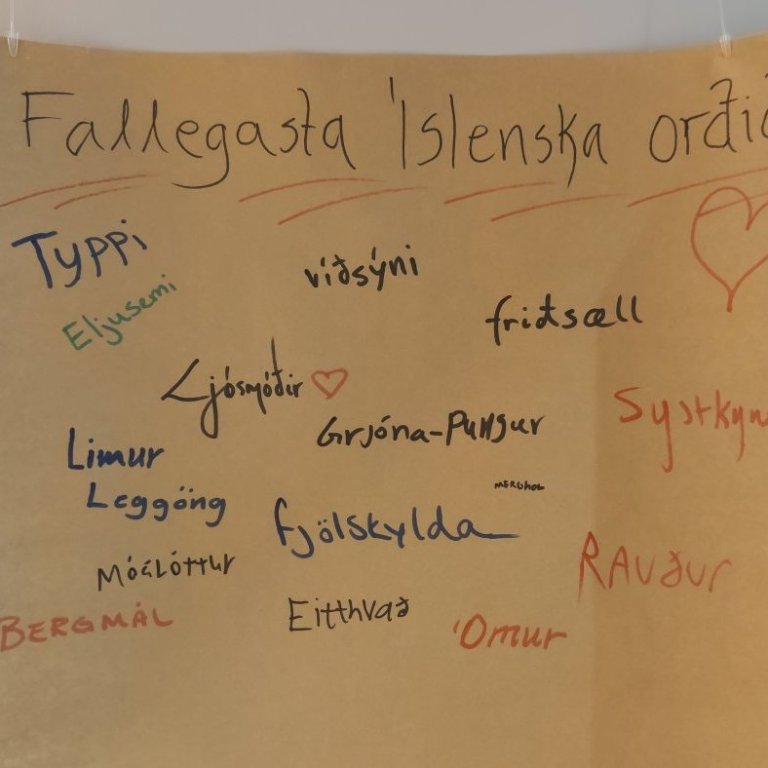 Fallegasta Íslenska orðið
Typpi
víðsýni
Eljusemi
friðsæll
Ljósmóðir
Grjóna-Pungur
Systkyn
Limur
Leggöng
fjölskylda
MÓGLÓTTUR
RAUður
BERGMÁL
Eitthvað
Ómur